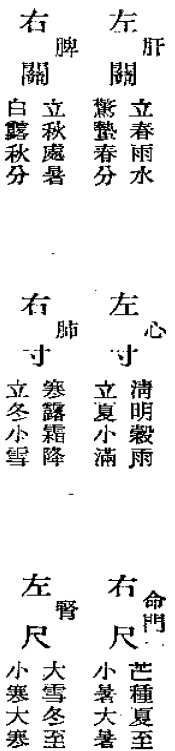 左關
肝
立春雨水
驚蟄春分
右關
脾
立秋處暑
白露秋分
左寸
心
淸明穀雨
立夏小滿
右寸
肺
寒露霜降
立冬小雪
右尺
命門
芒種夏至
小暑大暑
左尺
腎
大雪冬至
小寒大寒